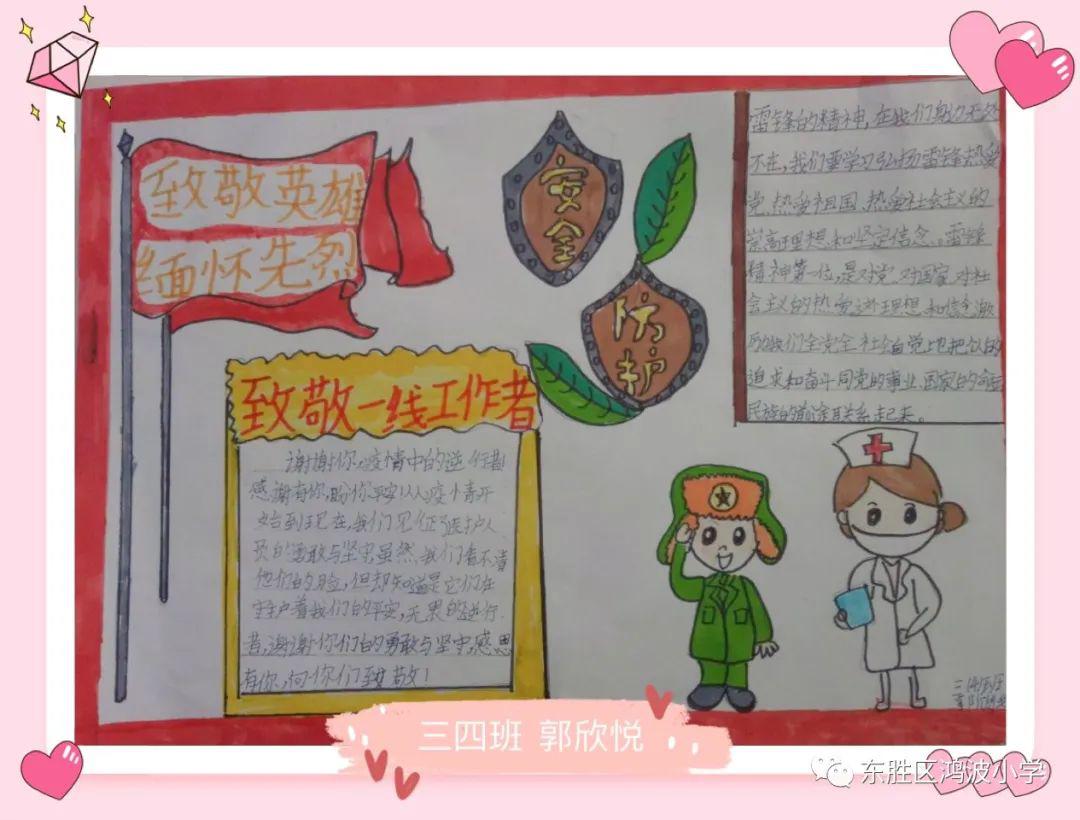 致敬英雄
缅怀先烈
安全
防护
雷锋的精神,在我们身边无处
不在,我们要学习弘扬雷锋热爱
党、热爱祖国、热爱社会主义的
崇高理想和坚定信念。雷锋
精神第一位,是对党、对国家、对社
会主义的热爱这升理想和信念激
励我们全党全社会自觉地把个人的
追求和奋斗同党的事业、国家的命运
民族的前途联系起来。
致敬一线工作者
谢谢你,疫情中的逆行者
感谢有你,盼你平安从疫情开
始到现在,我们见证了医护人
员的勇敢与坚守虽然,我们看不清
他们的脸,但却知道是它们在
守护着我们的平安,无畏的逆行
者,谢谢你们的勇敢与坚守,感恩
有你,向你们致敬!
三四班 郭欣悦
东胜区鸿波小学